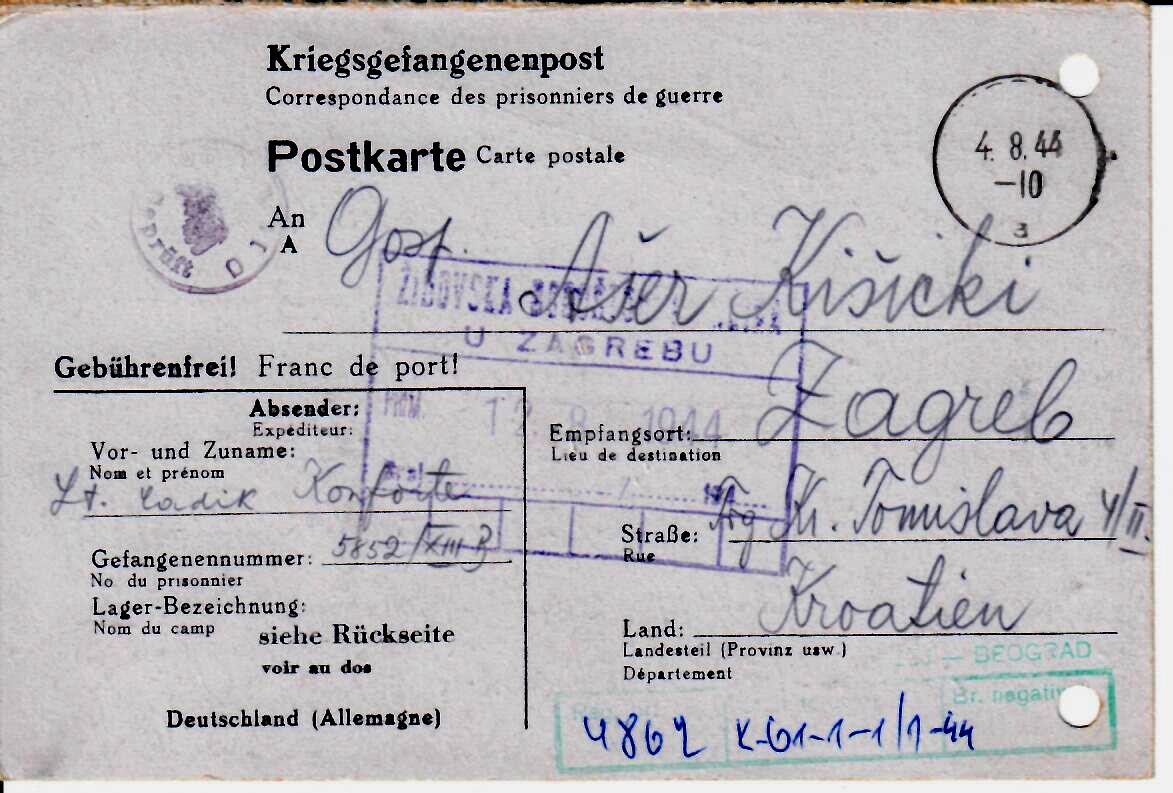 Kriegsgefangenenpost
Correspondance des prisonniers de guerre
Postkarte Carte postale
4. 8. 44
-10
a
geprüft
An
A
Gosp. Ašer Kišicki
ŽIDOVSKA
U ZAGREBU
PRIM. 12 8 1944
Gebührenfrei! Franc de port!
Absender:
Expéditeur:
Vor- und Zuname:
Nom et prénom
Lt. Cadik Konforte
Gefangenennummer: 5852/XIII B
No du prisonnier
Lager-Bezeichnung:
Nom du camp
siehe Rückseite
voir au dos
Deutschland (Allemagne)
Empfangsort: Zagreb
Lieu de destination
Straße: Trg Kr. Tomislava 4/II.
Rue
Land: Kroatien
Landesteil (Provinz usw.)
Département
— BEOGRAD
Br. negativ
4862 K-61-1-1/1-44